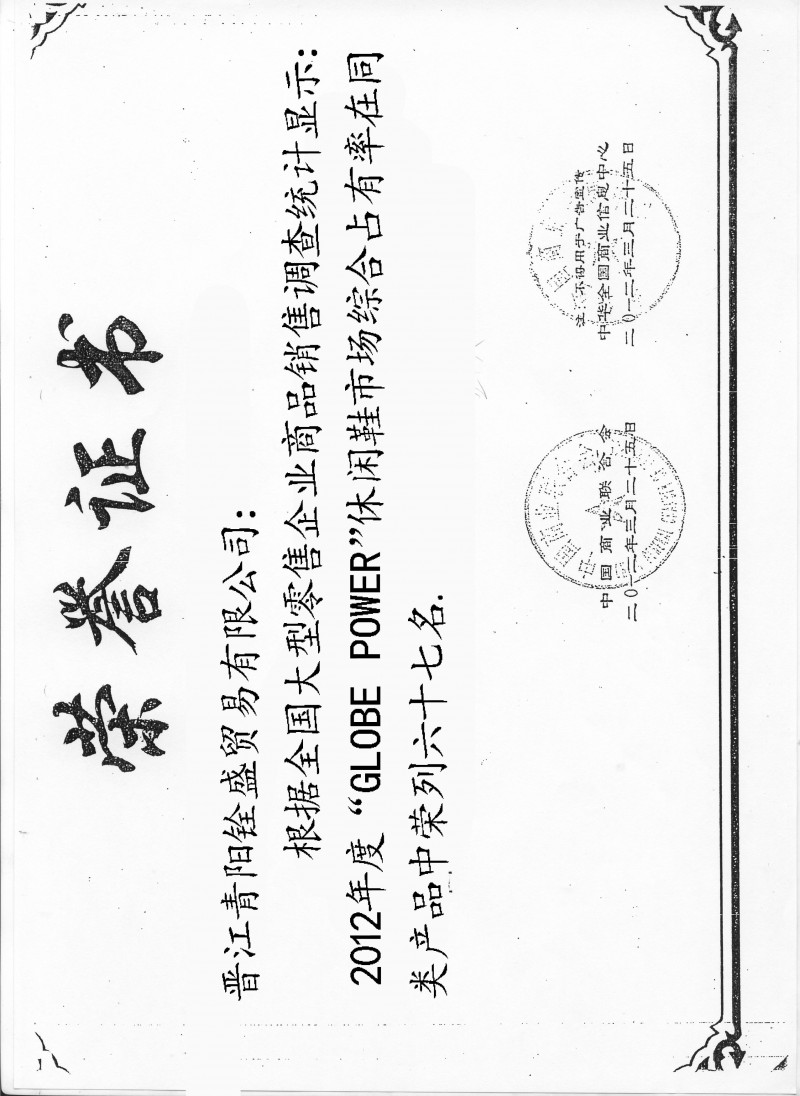 荣誉证书
晋江青阳铨盛贸易有限公司：
根据全国大型零售企业商品销售调查统计显示：
2012年度“GLOBE POWER”休闲鞋市场综合占有率在同
类产品中荣列六十七名.
注：不得用于广告宣传
中国商业联合会
二0一二年三月二十五日
中华全国商业信息中心
二0一二年三月二十五日